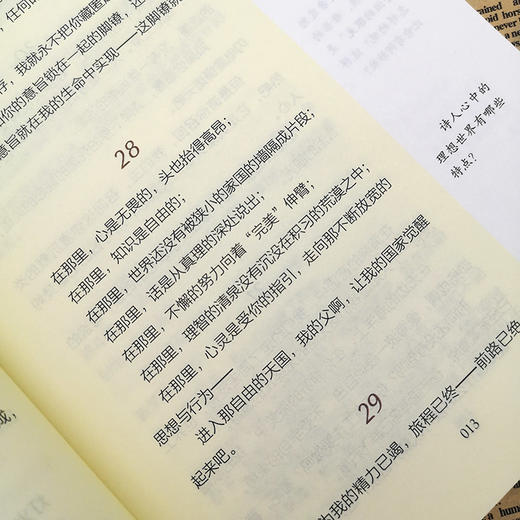 任何的
存，我就永不把你藏匿起
由你的意旨锁在一起的脚镣，还
意旨就在我的生命中实现——这脚镣就
28
在那里，心是无畏的，头也抬得高昂；
在那里，知识是自由的；
在那里，世界还没有被狭小的家国的墙隔成片段；
在那里，话是从真理的深处说出；
在那里，不懈的努力向着“完美”伸臂；
在那里，理智的清泉没有沉没在积习的荒漠之中；
在那里，心灵是受你的指引，走向那不断放宽的
思想与行为——
进入那自由的天国，我的父啊，让我的国家觉醒
起来吧。
29
为我的精力已竭，旅程已终——前路已绝
013
诗人心中的
理想世界有哪些
特点？